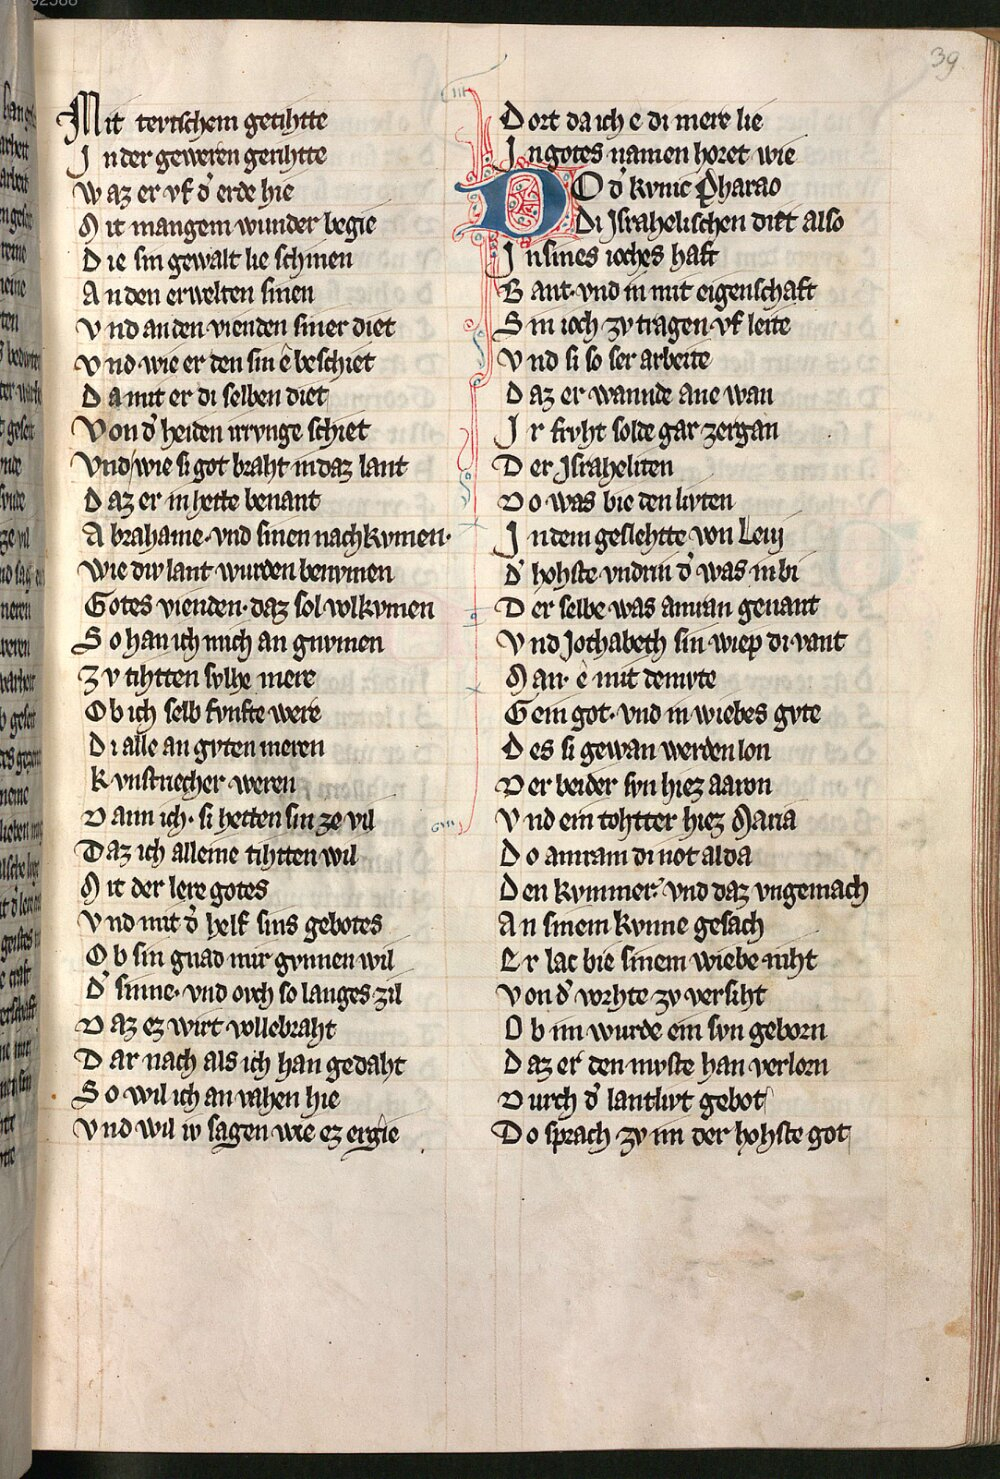 39
Mit tevtschem getihtte
In der geweren gerihtte
Waz er vf d' erde hie
Mit mangem wunder begie
Die sin gewalt lie schinen
An den erwelten sinen
Vnd an den vienden siner diet
Vnd wie er den sin ê beschiet
Da mit er di selben diet
Von d' heiden irrvnge schiet
Vnd wie si got braht in daz lant
Daz er in hette benant
Abrahame · vnd sinen nachkvmen ·
Wie div lant wurden benvmen
Gotes vienden · daz sol volkvmen
So han ich mich an gnvmen
Zv tihtten svlhe mere
Ob ich selb fvnfte were
Di alle an gvten meren
Kvnstriecher weren
Dann ich · si hetten sin ze vil
Daz ich alleine tihtten wil
Mit der lere gotes
Vnd mit d' helf sins gebotes
Ob sin gnad mir gvnnen wil
D' sinne · vnd ovch so langes zil
Daz ez wirt vollebraht
Dar nach als ich han gedaht
So wil ich an vahen hie
Vnd wil iv sagen wie ez ergie
Dort da ich e di mere lie
In gotes namen horet wie
DO d' kvnic Pharao
Di Jsrahelischen diet also
In sines ioches haft
Bant · vnd in mit eigenschaft
Sin ioch zv tragen vf leite
Vnd si so ser arbeite
Daz er wannde ane wan
Ir frvht solde gar zergan
Der Jsraheliten
Do was bie den ziten
In dem geslehtte von Levi
D' hohste vndrin d' was in bi
Der selbe was amran genant
Vnd Jochabeth sin wiep di vant
Man · ê mit demvte
Gein got · vnd in wiebes gvte
Des si gewan werden lon
Der beider svn hiez aaron
Vnd ein tohtter hiez Maria
Do amram di not alda
Den kvmmer · vnd daz vngemach
An sinem kvnne gesach
Er lac bie sinem wiebe niht
Von d' vorhte zv versiht
Ob im wurde ein svn geborn
Daz er den mvste han verlorn
Durch d' lantlivt gebot
Do sprach zv im der hohste got